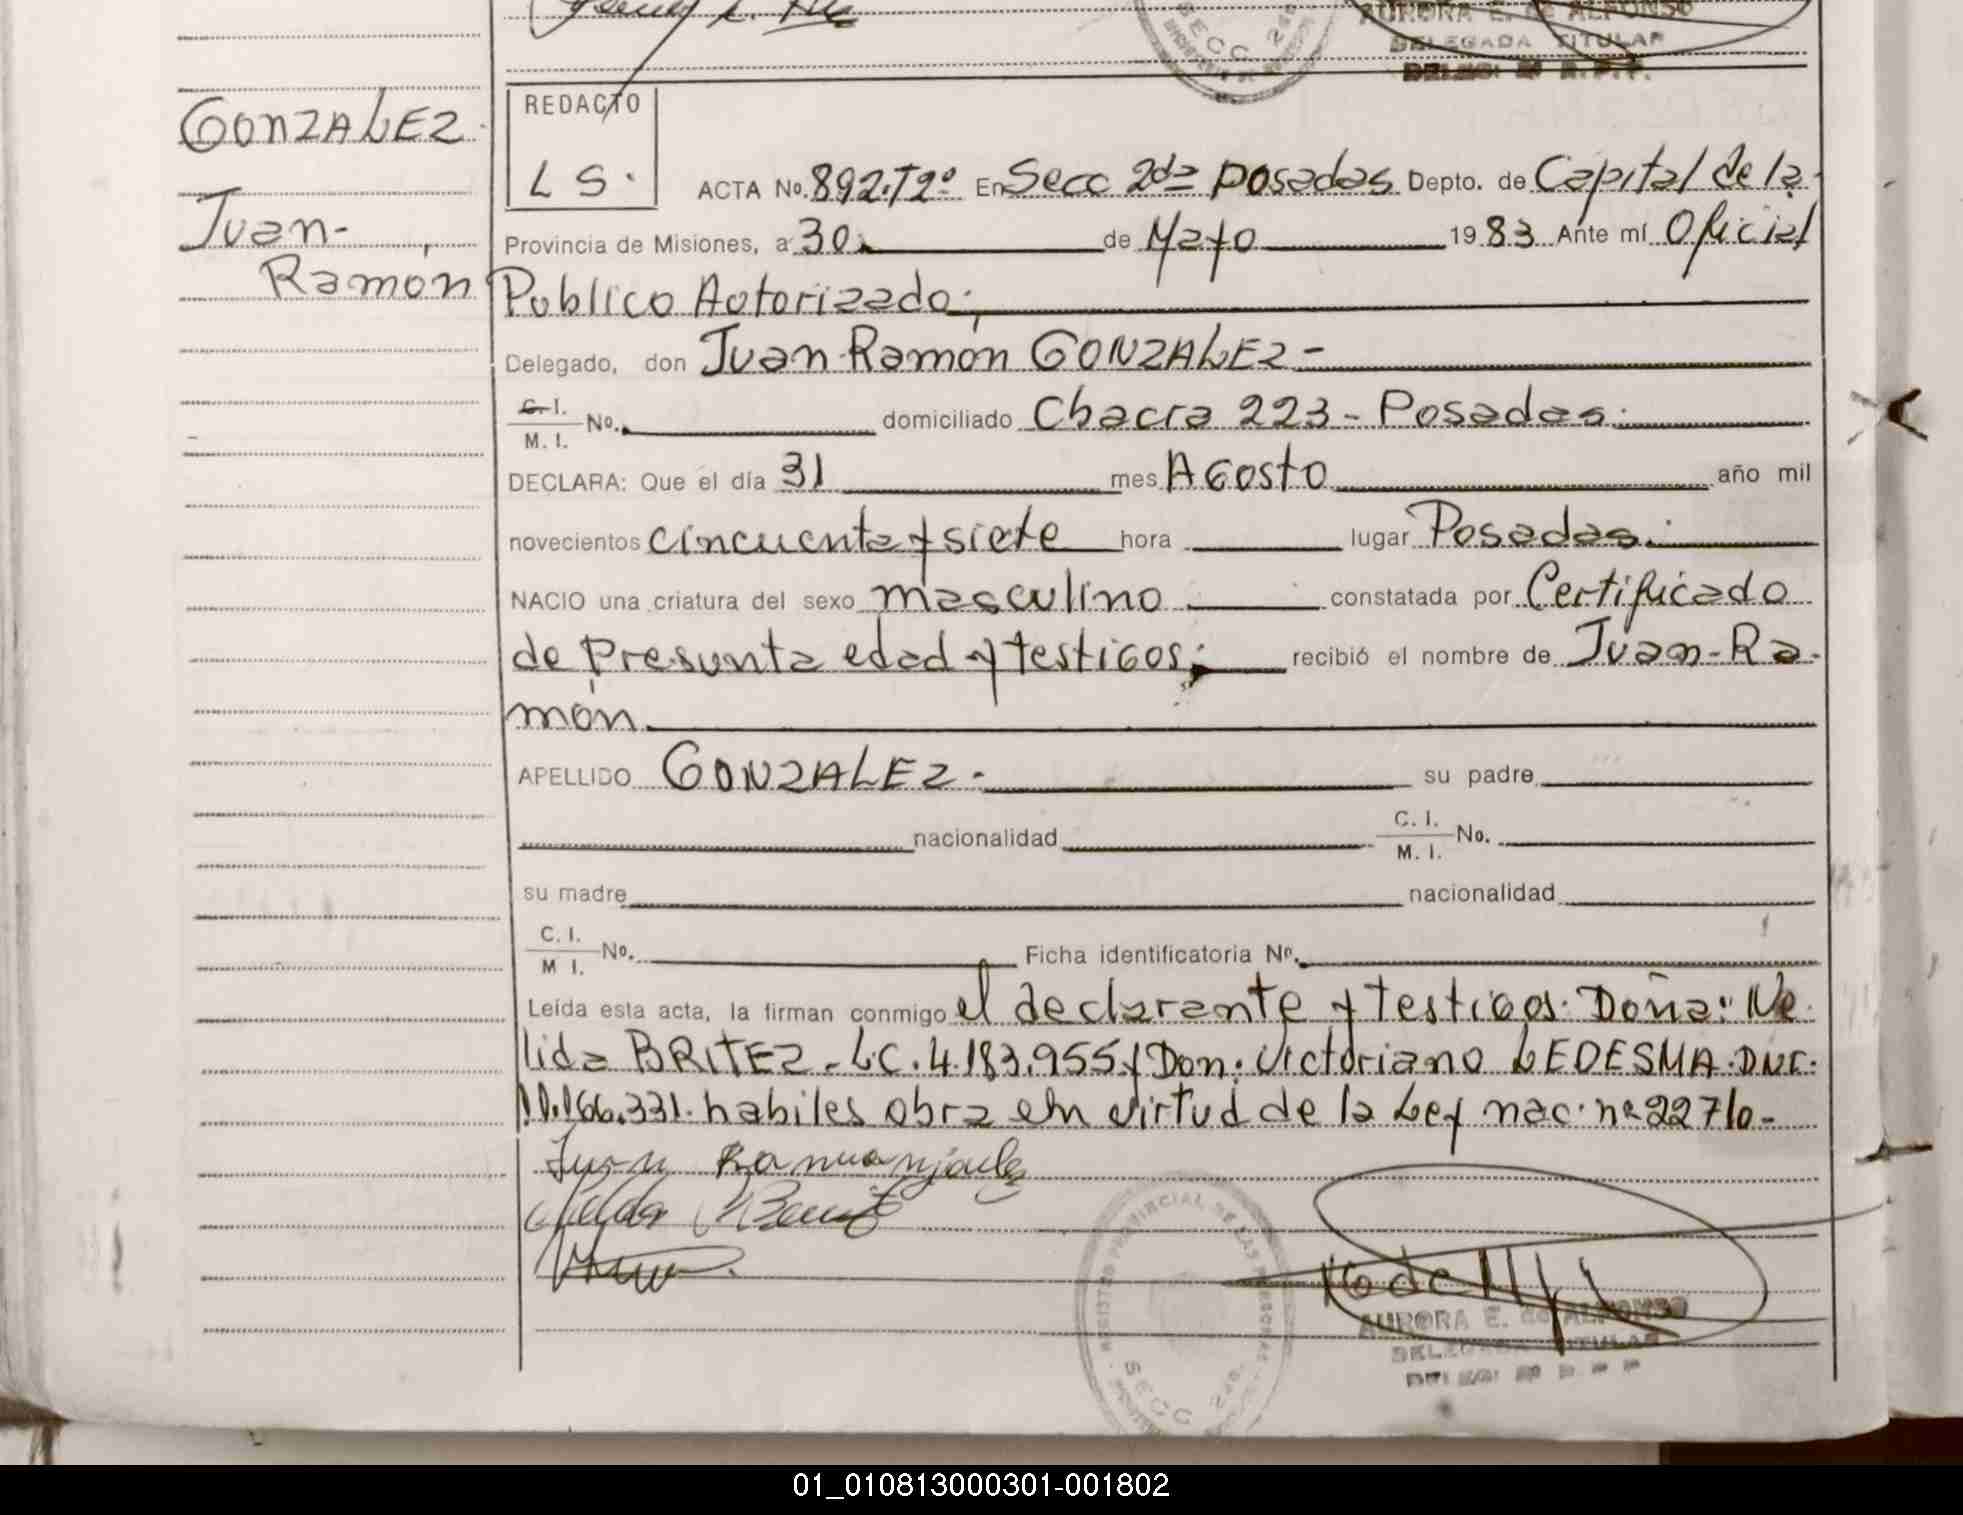 AURORA E. de ALFONSO
DELEGADA TITULAR
SECC 2da
GONZALEZ.
Juan-
Ramón
REDACTO
LS.
ACTA No. 892.T2º En Secc 2da Posadas Depto. de Capital de la
Provincia de Misiones, a 30. de Mayo 1983 Ante mí Oficial
Publico Autorizado;
Delegado, don Juan Ramón GONZALEZ-
C. I.
M. I. No. domiciliado Chacra 223- Posadas.
DECLARA: Que el día 31 mes AGosto año mil
novecientos cincuenta y siete hora lugar Posadas.
NACIO una criatura del sexo masculino constatada por Certificado
de presunta edad y testigos; recibió el nombre de Juan-Ra-
món.
APELLIDO GONZALEZ- su padre
nacionalidad C. I.
M. I. No.
su madre nacionalidad
C. I.
M I. No. Ficha identificatoria No.
Leída esta acta, la firman conmigo el declarante y testigos: Doña: Ne-
lida BRITEZ-LC.4.183.955 y Don: Victoriano LEDESMA.DNI.
166.331. habiles obra en virtud de la Ley nac. nº 22710-
REGISTRO PROVINCIAL DE LAS PERSONAS
SECC 2da.
AURORA E. de ALFONSO
DELEGADA TITULAR
01_010813000301-001802